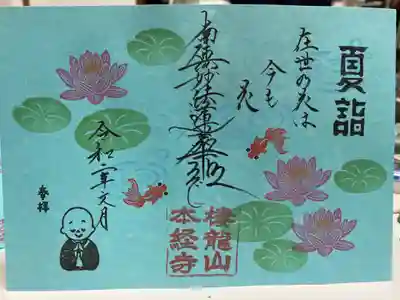 夏詣
在世の花は
今も
花
南無妙法蓮華経
令和二年文月
奉拝
棲龍山
本経寺